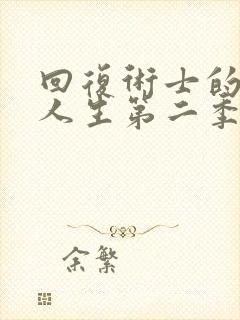 回復術士的
人生第二季
余繁